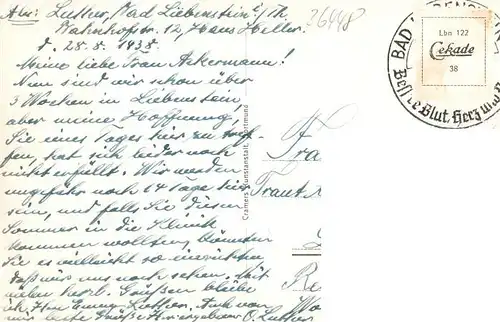 Abs: Luther, Bad Liebenstein i/Th.
Bahnhofstr. 12, Haus Heller.
d. 28. 8. 1938.
Meine liebe Frau Ackermann!
Nun sind wir schon über
3 Wochen in Liebenstein
aber meine Hoffnung,
Sie eines Tages hier zu tref-
fen, hat sich leider noch
nicht erfüllt. Wir werden
ungefähr noch 14 Tage hier
sein, und falls Sie diesen
Sommer in die Klinik
kommen wollten, könnten
Sie es vielleicht so einrichten
daß wir uns noch sehen. Mit
vielen herzl. Grüßen bleibe
ich, Ihre Emmy Luther. Auch von
mir beste Grüße Ihr ergebener O. Luther
26448
BAD LIEBENSTEIN
Lbn 122
Cekade
38
Cramers Kunstanstalt, Dortmund
Fra
Traut